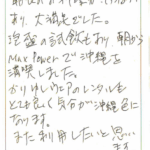 あり、大満足でした。
泡盛の試飲もあり朝から
Max Powerで沖縄を
満喫しました。
かりゆしウェアのレンタルも
とても良く気分が沖縄色に
なります。
また利用したいと思い
ます